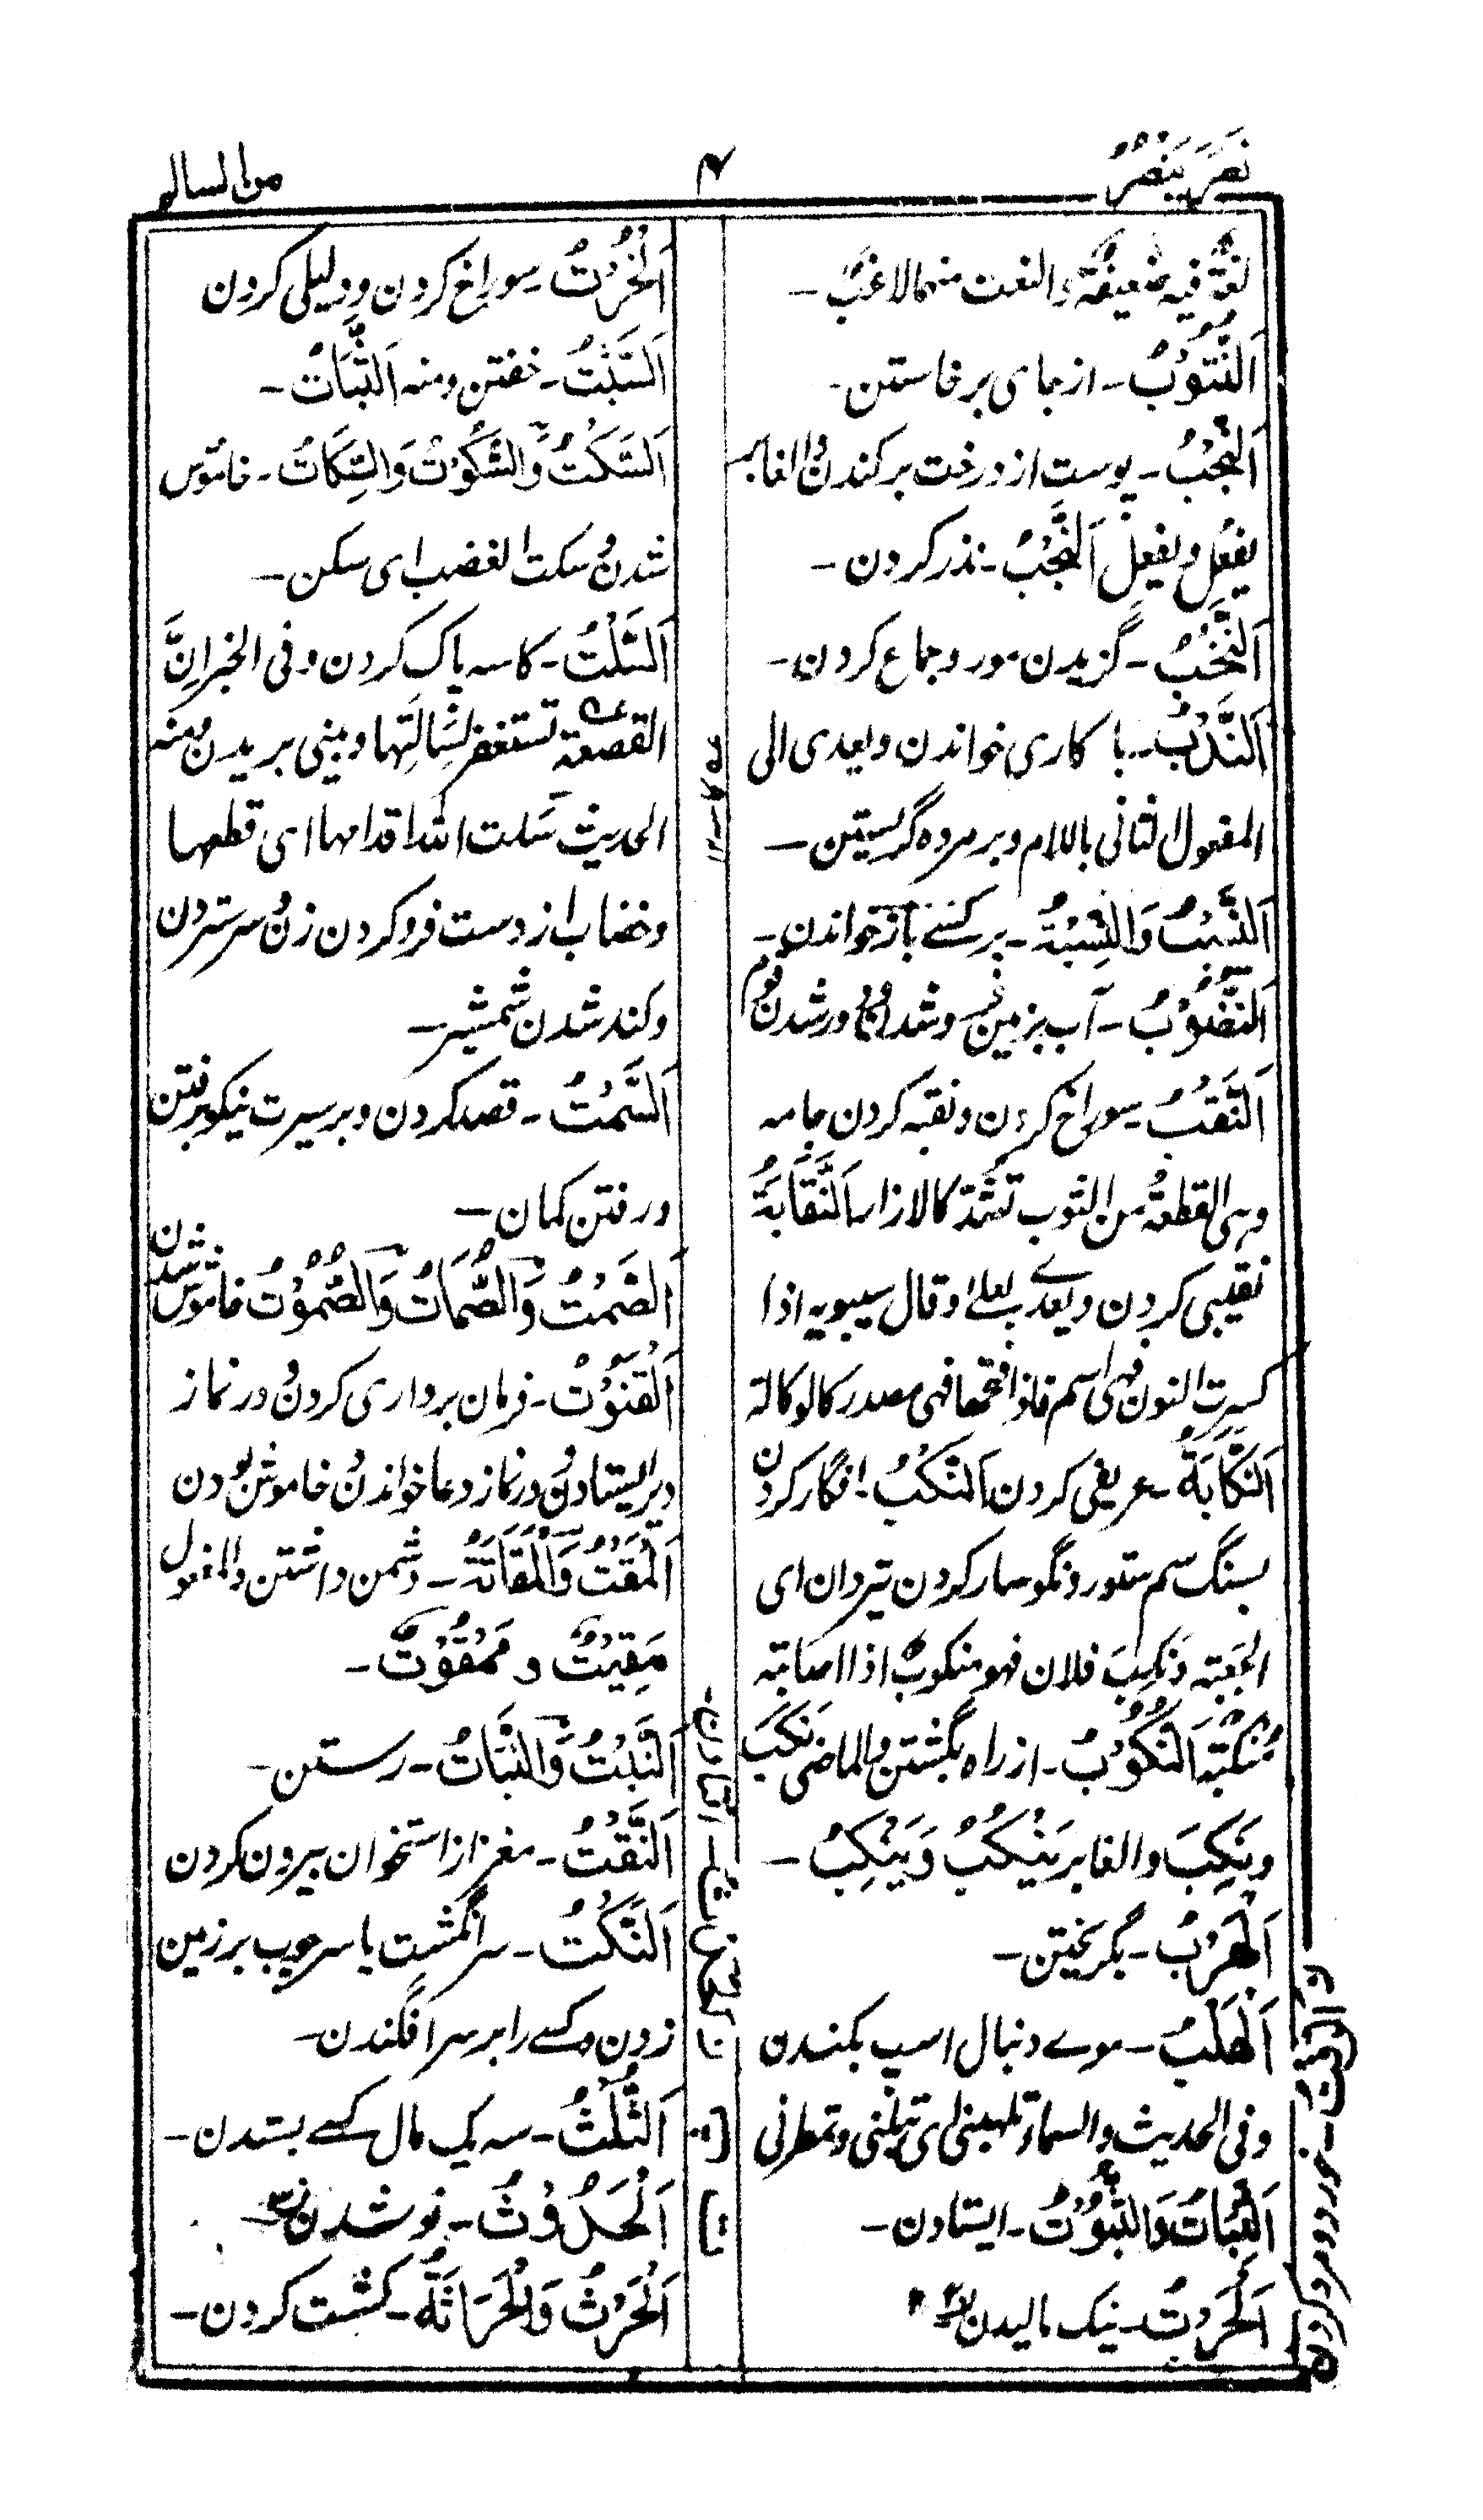 نَصَرَ يَنْصُرُ
۴
من السالم
لغة فيه ضعيفة والنعت منهما لاغب ـ
اَلنُّتُوْبُ ـ از جای برخاستن ـ
اَلنَّجْبُ ـ پوست از درخت برکندن والغابر
يفعُل ويفعِل اَلنَّحْبُ ـ نذر کردن ـ
اَلنَّخْبُ ـ گزیدن مور و جماع کردن ـ
اَلنَّدْبُ ـ با کاری خواندن ویعدی الی
المفعول الثانی باللام و بر مرده گریستن ـ
اَلنَّسَبُ وَالنِّسْبَةُ ـ بر کسے باز خواندن ـ
اَلنُّضُوْبُ ـ آب بزمین فرو شدن و دور شدن قوم
اَلنَّقْبُ ـ سوراخ کردن و نقبه کردن جامه
وهی القطعة من الثوب تشد کالازار اَلنَّقَابَةُ
نقیبی کردن ویعدے بعلی وقال سیبویه اذا
کسرت النون فهی اسم فاذا فتحتها فهی مصدر کالوکالة
اَلنَّكَابَةُ ـ عریفی کردن اَلنَّكْبُ ـ افگار کردن
بسنگ سم ستور و نگوسار کردن تیردان ای
الجعبة ونُكِبَ فلان فهو منکوب اذا اصابته
نَكْبَةٌ اَلنُّكُوْبُ ـ از راه بگشتن والماضی نَكَبَ
ونَكِبَ والغابر يَنْكُبُ وَيَنْكِبُ ـ
اَلْهَرَبُ ـ بگریختن ـ
اَلْهَلْبُ ـ موے دنبال اسپ بکندن
وفی الحدیث والسماء تهلبنی ای تبلنی وتمطرنی
اَلثَّبَاتُ وَالثُّبُوْتُ ـ ایستادن ـ
اَلْحَرْتُ ـ نیک مالیدن
اَلْخَرْتُ ـ سوراخ کردن و دلیلی کردن
اَلسَّبْتُ ـ خفتن ومنه اَلسُّبَاتُ ـ
اَلسَّكْتُ وَالسُّكُوْتُ وَالسُّكَاتُ ـ خاموش
شدن و سکت الغضب ای سکن ـ
اَلسَّلْتُ ـ کاسه پاک کردن وفی الخبر اِنَّ
القصعة تستغفر لسالتها و بینی بریدن ومنه
الحدیث سلت الله اقدامها ای قطعها
و خضاب از دست فرو کردن زن و سر ستردن
و کند شدن شمشیر ـ
اَلسَّمْتُ ـ قصد کردن و بر سیرت نیکو رفتن
و رفتن کمان ـ
اَلصَّمْتُ وَالصُّمَاتُ وَالصُّمُوْتُ خاموش شدن
اَلْقُنُوْتُ ـ فرمان برداری کردن و در نماز
دیر ایستادن و در نماز دعا خواندن و خاموش بودن
اَلْمَقْتُ وَالْمَقَاتَةُ ـ دشمن داشتن والمفعول
مَقِيْتٌ و مَمْقُوْتٌ ـ
اَلنَّبْتُ وَالنَّبَاتُ ـ رستن ـ
اَلنَّقْتُ ـ مغز از استخوان بیرون کردن
اَلنَّكْتُ ـ سر انگشت یا سر چوب بر زمین
زدن و کسے را بر سر افگندن ـ
اَلثَّلْثُ ـ سه یک مال کسے بستدن ـ
اَلْحُدُوْثُ ـ نو شدن
اَلْحَرْثُ وَالْحَرَاثَةُ ـ کشت کردن ـ